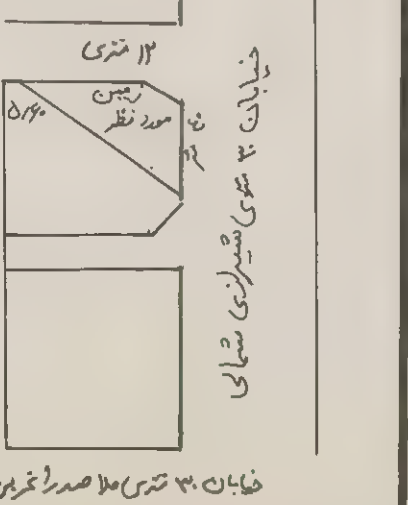 ۱۲ متری
زمین
مورد نظر
۵/۶۰
خیابان ۳۰ متری شیرازی شمالی
خیابان ۳۰ متری ملاصدرا غربی